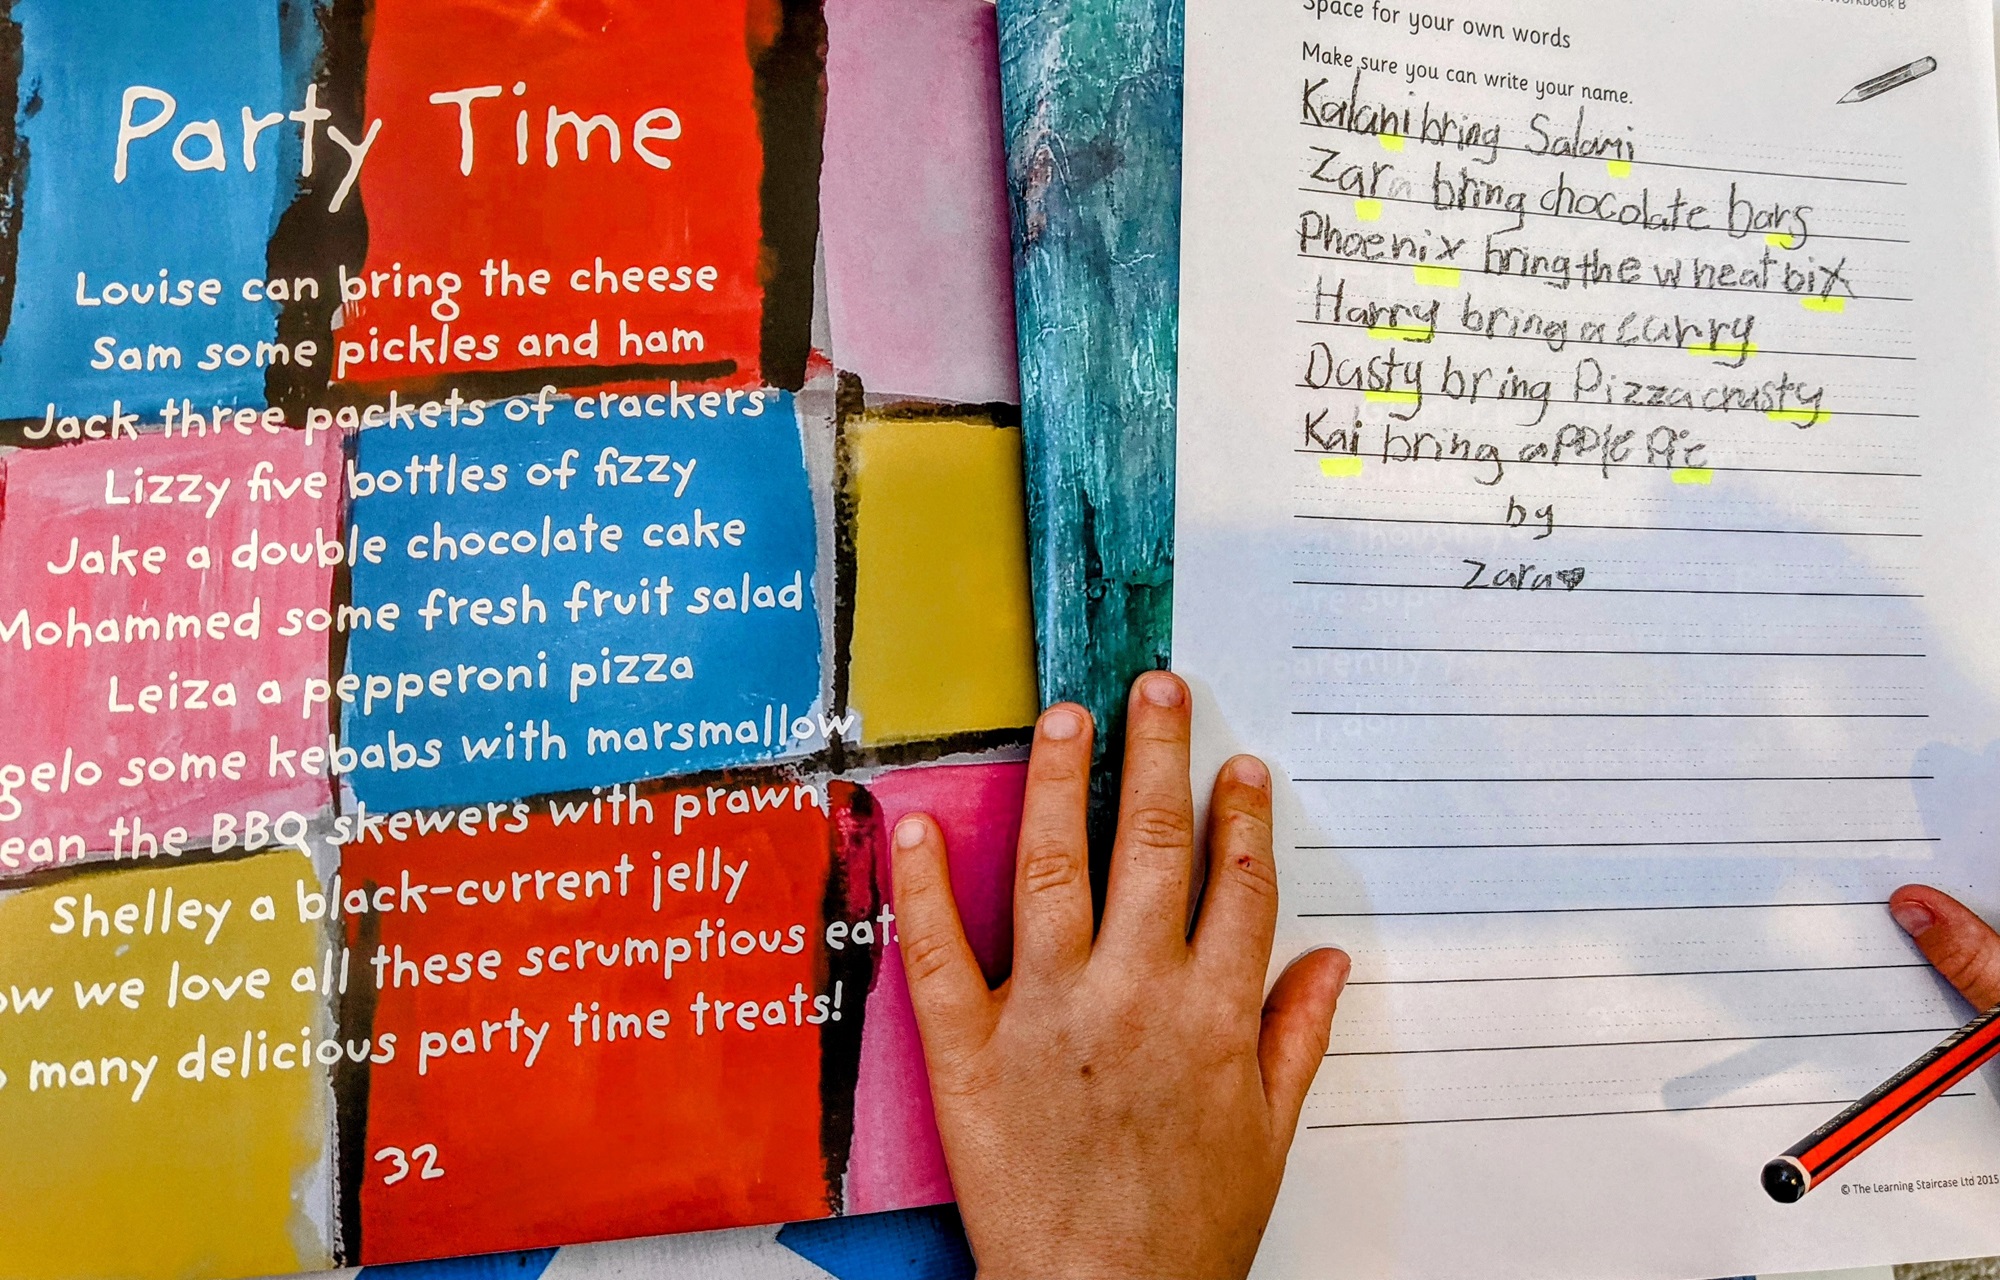 Party Time
Louise can bring the cheese
Sam some pickles and ham
Jack three packets of crackers
Lizzy five bottles of fizzy
Jake a double chocolate cake
Mohammed some fresh fruit salad
Leiza a pepperoni pizza
gelo some kebabs with marsmallow
ean the BBQ skewers with prawn
Shelley a black-current jelly
ow we love all these scrumptious eats
many delicious party time treats!
32
Space for your own words
Make sure you can write your name.
Kalani bring Salami
Zara bring chocolate bars
Phoenix bring the wheat bix
Harry bring a curry
Dusty bring Pizza crusty
Kai bring apple Pie
by
Zara
© The Learning Staircase Ltd 2015